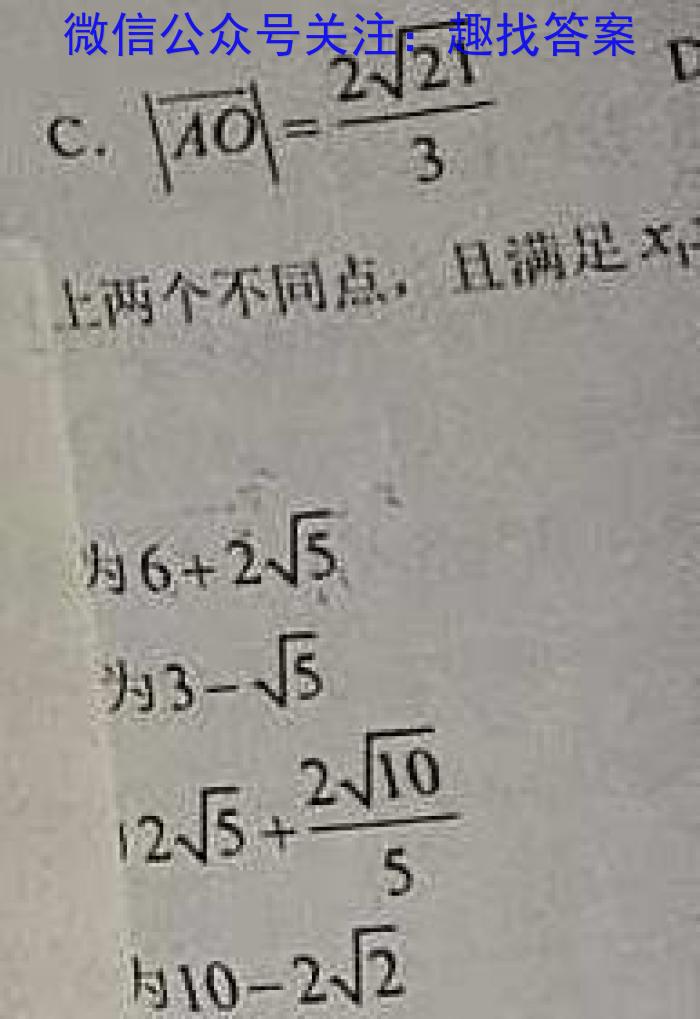 微信公众号关注：趣找答案
C. |AO| = 2√21/3 D
上两个不同点，且满足 x₁
为 6+2√5
为 3-√5
2√5+2√10/5
为 10-2√2